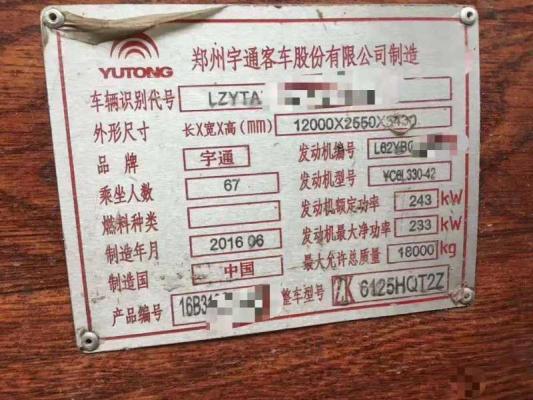 YUTONG 郑州宇通客车股份有限公司制造
车辆识别代号 LZYTA
外形尺寸 长X宽X高(mm) 12000X2550X3430
品牌 宇通 发动机编号 L62YB0
乘坐人数 67 发动机型号 YC6L330-42
燃料种类 发动机额定功率 243 kW
制造年月 2016 06 发动机最大净功率 233 kW
制造国 中国 最大允许总质量 18000 kg
产品编号 16B31 整车型号 ZK 6125HQT2Z